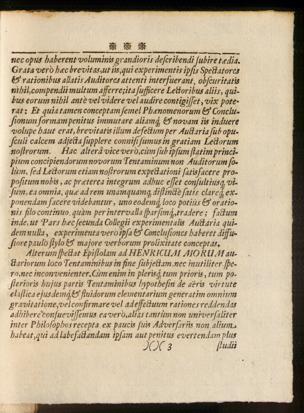 nec opus haberent voluminis grandioris describendi subire tædia.
Grata verò hæc brevitas, ut iis, qui experimentis ipsis Spectatores
& rationibus allatis Auditores attenti interfuerant, obscuritatis
nihil, compendii multum afferre; ita sufficere Lectoribus aliis, qui-
bus eorum nihil antè vel videre vel audire contigisset, vix pote-
rat: Et quia tamen conceptam semel Phænomenorum & Conclu-
sionum formam penitus immutare aliamq; & novam iis induere
volupe haut erat, brevitatis illum defectum per Auctaria sub opu-
sculi calcem adjecta supplere commisimus in gratiam Lectorum
nostrorum. Hac alterâ vice verò, cùm sub ipsum statim princi-
pium concipiendorum novorum Tentaminum non Auditorum so-
lùm, sed Lectorum etiam nostrorum expectationi satisfacere pro-
positum nobis, ac præterea integrum adhuc esset consultiusq; vi-
sum, ea omnia, quæ ad rem unamquamq; distinctè satis clareq; ex-
ponendam facere videbantur, uno eodemq; loco potiùs & oratio-
nis filo continuo, quàm per intervalla sparsimq; tradere; factum
inde, ut Pars hæc secunda Collegii experimentalis Auctaria qui-
dem nulla, experimenta verò ipsa & Conclusiones haberet diffu-
siore paulò stylo & majore verborum prolixitate conceptas.
Alterum spectat Epistolam ad HENRICUM MORUM au-
ctariorum loco Tentaminibus in fine subjectam nec inutiliter spe-
ro, nec inconvenienter. Cùm enim in plerisq; tum prioris, tum po-
sterioris hujus partis Tentaminibus hypothesin de aëris virtute
elastica ejusdemq; & fluidorum elementarium generatim omnium
gravitatione, vel confirmare vel ad effectuum rationes reddendas
adhibere consuevissemus ea verò, alias tantùm non universaliter
inter Philosophos recepta ex paucis suis Adversariis non alium
habeat, qui ad labefactandam ipsam aut penitus evertendam plus
)( )( 3 studii